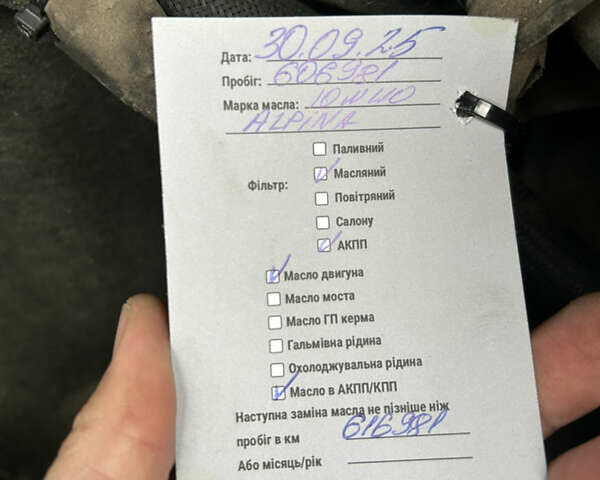 Дата: 30.09.25
Пробіг: 606981
Марка масла: 10W40
ALPINA
Паливний
Фільтр: Масляний
Повітряний
Салону
АКПП
Масло двигуна
Масло моста
Масло ГП керма
Гальмівна рідина
Охолоджувальна рідина
Масло в АКПП/КПП
Наступна заміна масла не пізніше ніж
пробіг в км 616981
Або місяць/рік